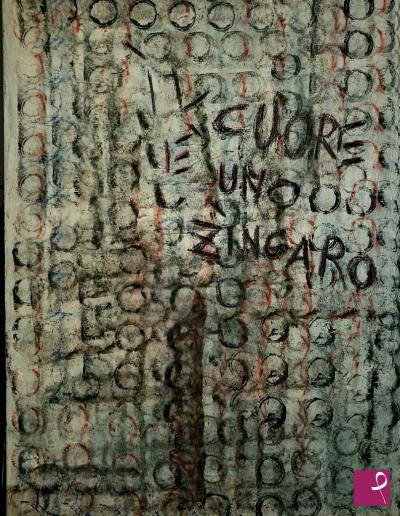 IL CUORE
È UNO
ZINGARO